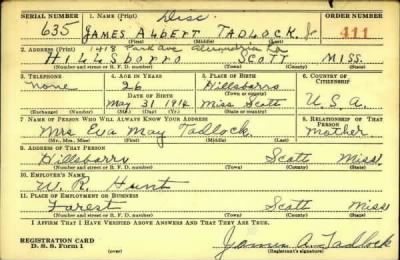 SERIAL NUMBER 1. NAME (Print) ORDER NUMBER
Disc.
635 JAMES ALBERT TADLOCK, Jr 411
(First) (Middle) (Last)
2. ADDRESS (Print) 1418 Park Ave Alexandria La
HILLSBORRO SCOTT MISS.
(Number and street or R. F. D. number) (Town) (County) (State)
3. TELEPHONE 4. AGE IN YEARS 5. PLACE OF BIRTH 6. COUNTRY OF CITIZENSHIP
none 26 Hillsborro
DATE OF BIRTH (Town or county)
May 31 1914 Miss Scott U.S.A.
(Exchange) (Number) (Mo.) (Day) (Yr.) (State or country)
7. NAME OF PERSON WHO WILL ALWAYS KNOW YOUR ADDRESS 8. RELATIONSHIP OF THAT PERSON
Mrs Eva May Tadlock Mother
(Mr., Mrs., Miss) (First) (Middle) (Last)
9. ADDRESS OF THAT PERSON
Hillsborro Scott Miss
(Number and street or R. F. D. number) (Town) (County) (State)
10. EMPLOYER'S NAME
W. R. Hunt
11. PLACE OF EMPLOYMENT OR BUSINESS
Forest Scott Miss.
(Number and street or R. F. D. number) (Town) (County) (State)
I AFFIRM THAT I HAVE VERIFIED ABOVE ANSWERS AND THAT THEY ARE TRUE.
REGISTRATION CARD
D. S. S. Form 1 (over) James A. Tadlock
(Registrant's signature)